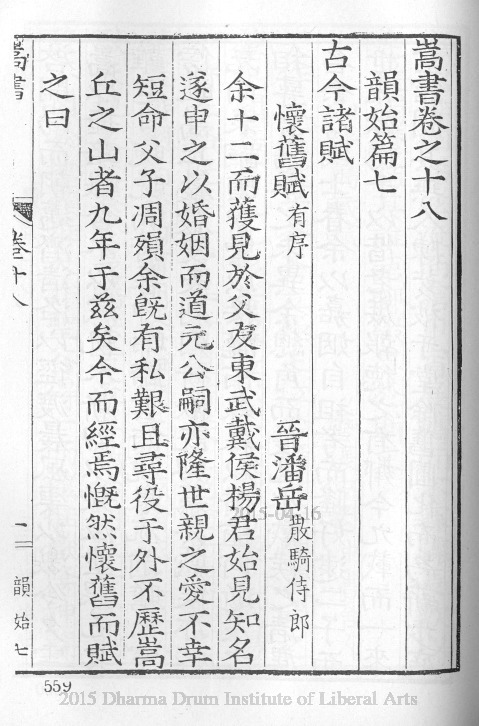 嵩書卷之十八
韻始篇七
古今諸賦
懷舊賦有序 晉潘岳散騎侍郎
余十二而獲見於父友東武戴侯楊君始見知名
遂申之以婚姻而道元公嗣亦隆世親之愛不幸
短命父子凋殞余旣有私艱且尋役于外不歷嵩
丘之山者九年于兹矣今而經焉慨然懷舊而賦
之曰
嵩書 卷十八 一 韻始七
2015-04-16
559
2015 Dharma Drum Institute of Liberal Arts